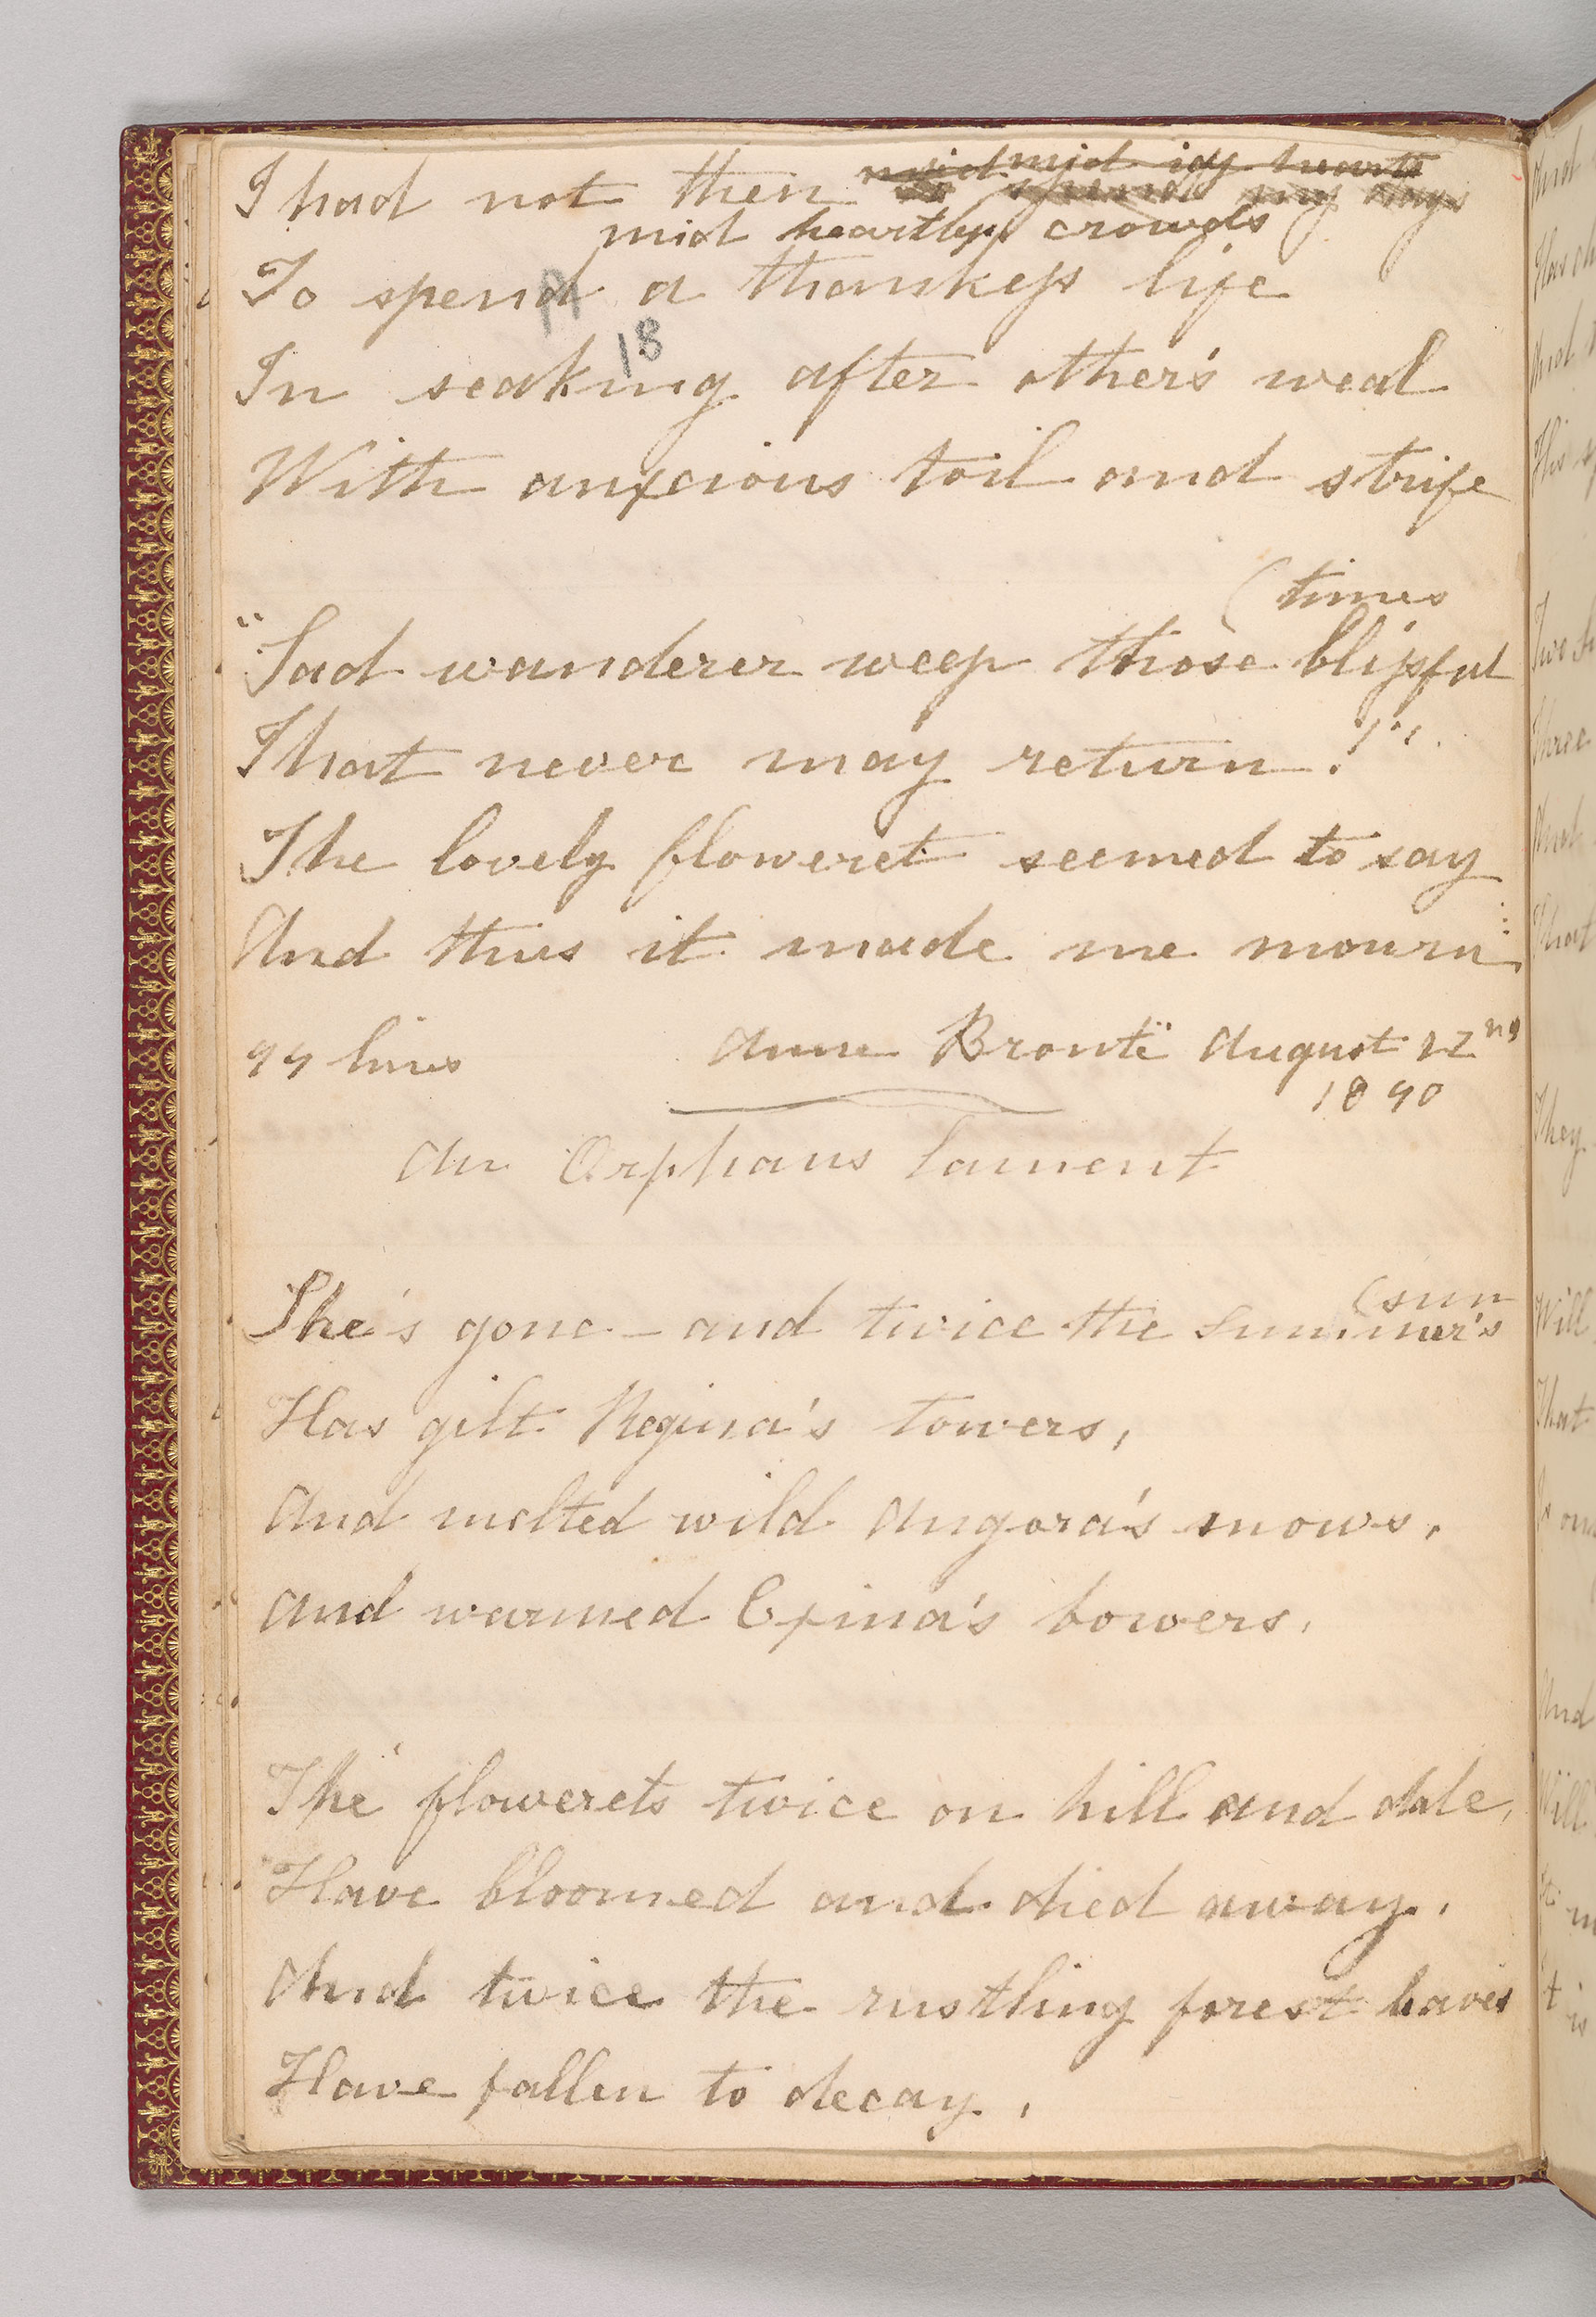 I had not then mid mid icy hearts
to spend my days
mid heartless crowds
To spend a thankless life
18
In seaking after other's weal
With anxcious toil and strife
(times
"Sad wanderer weep those blissful
That never may return!"
The lovely floweret seemed to say
And thus it made me mourn
44 lines Anne Brontë August 22nd
1840
An Orphans Lament
(sun
She's gone – and twice the summer's
Has gilt Regina's towers,
And melted wild Angora's snows,
And warmed Exina's bowers.
The flowerets twice on hill and dale,
Have bloomed and died away,
And twice the rustling forest leaves
Have fallen to decay,